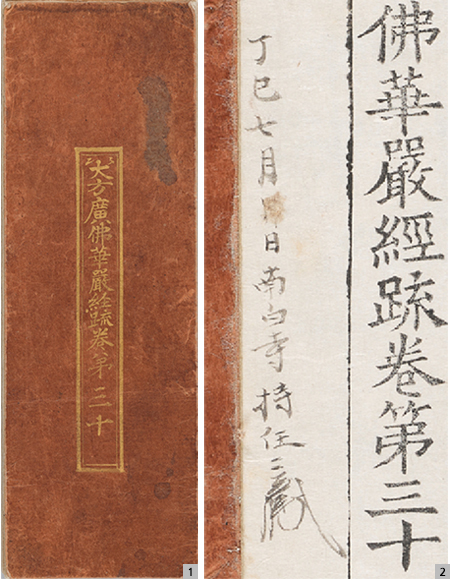 大方廣佛華嚴經疏卷第三十
1
佛華嚴經疏卷第三十
丁巳七月 日南白寺持任
2